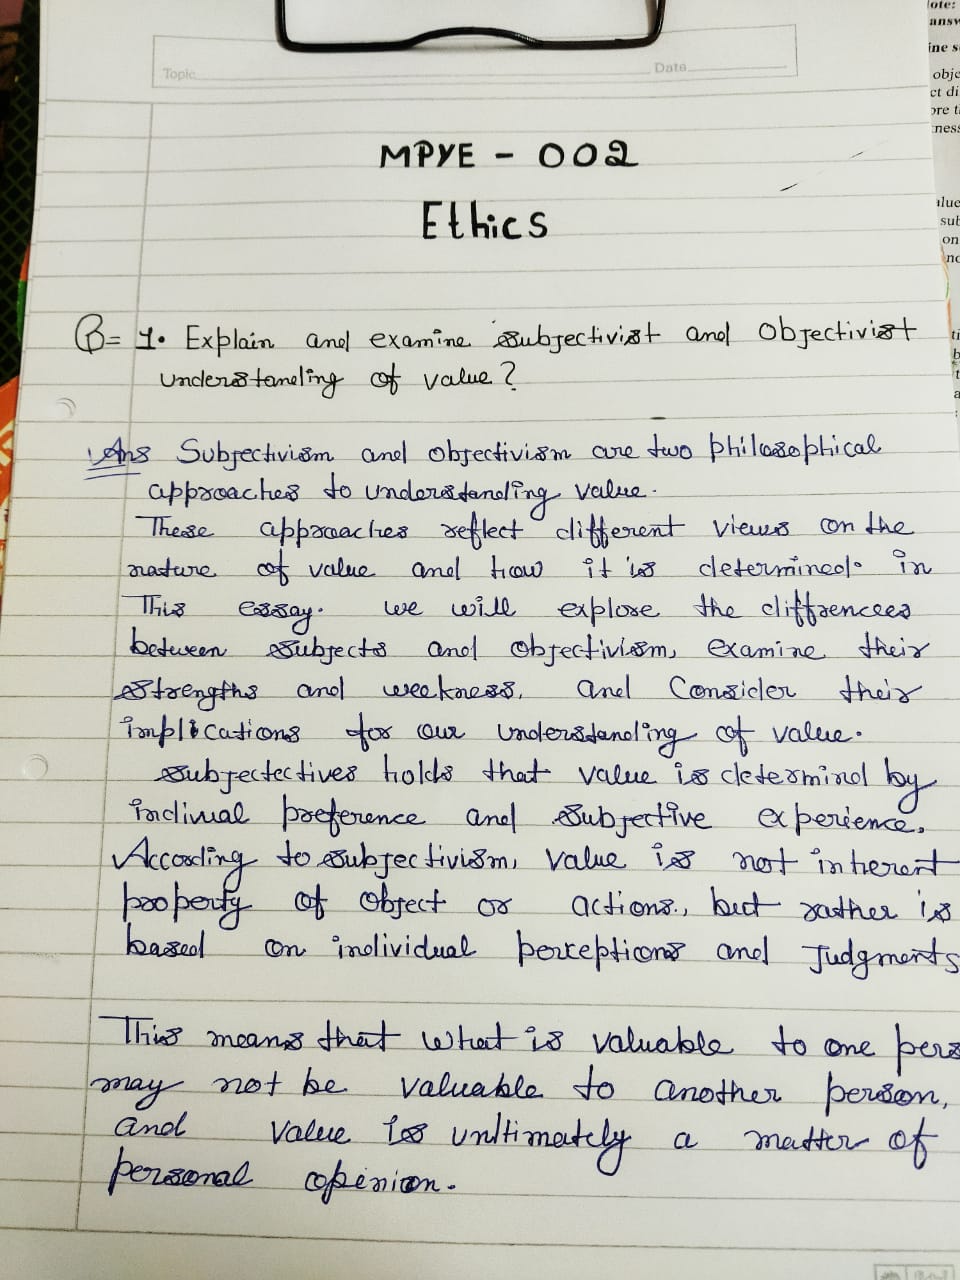 Topic
Date
MPYE - 002
Ethics
Q= 1. Explain and examine subjectivist and Objectivist
understanding of value?
Ans Subjectivism and objectivism are two philosophical
approaches to understanding value.
These approaches reflect different views on the
nature of value and how it is determined. in
This essay. we will explore the differencees
between subjects and objectivism, examine their
strengths and weekness, and Consider their
implications for our understanding of value.
subjectectives holds that value is determind by
indiviual preference and subjective experience.
According to subjectivism, value is not inherent
property of object or actions., but rather is
based on individual perceptions and Judgments
This means that what is valuable to one pers
may not be valuable to another person,
and value is unltimately a matter of
personal openion.
ote:
answ
ine s
obje
ct di
ore t
ness
alue
sub
on